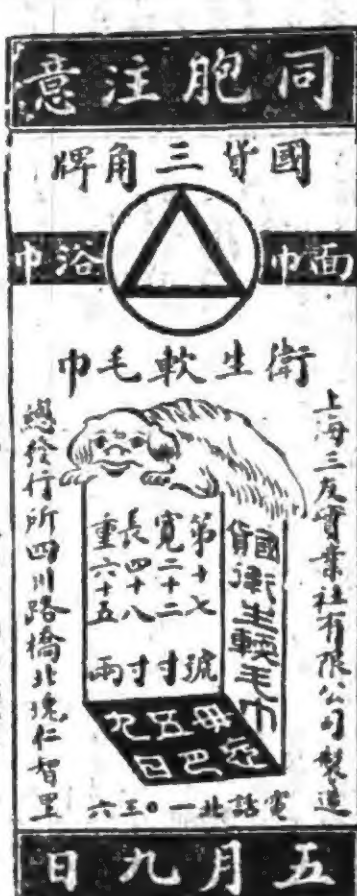 同胞注意
國貨三角牌
面巾
浴巾
衛生軟毛巾
上海三友實業社有限公司製造
國貨衛生軟毛巾
第十七號
寬二十二寸
長四十八寸
重六十五兩
毋忘
五九
國恥
總發行所四川路橋北塊仁智里
電話北一〇三六
五月九日